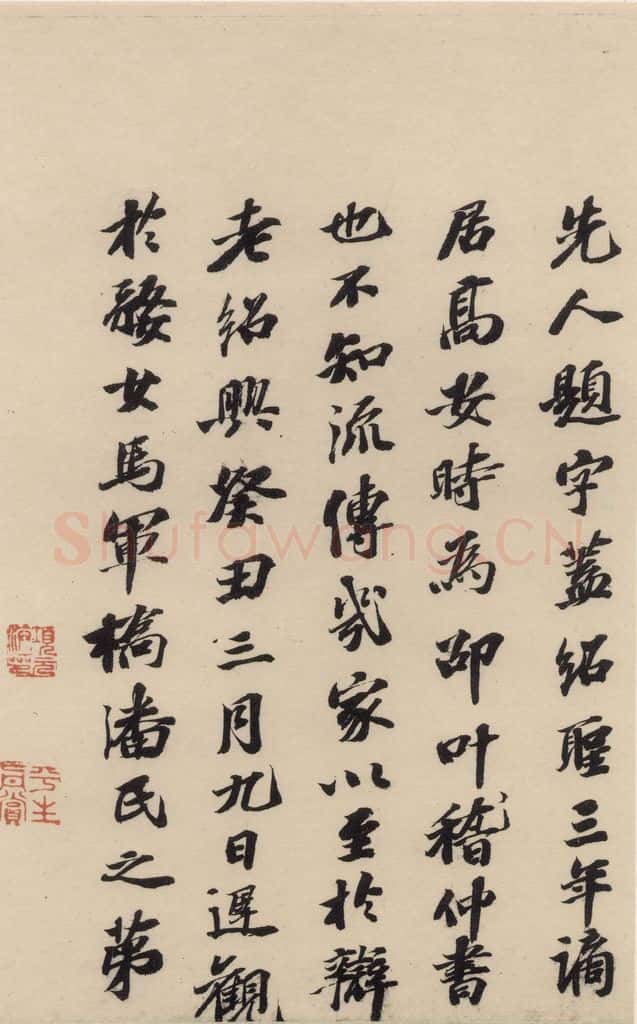 先人題字蓋紹聖三年謫
居高安時為邵叶稽仲書
也不知流傳幾家以至於辯
老紹興癸丑三月九日遲觀
於婺女馬軍橋潘氏之第
項元汴印
平生真賞
Shufawang.CN